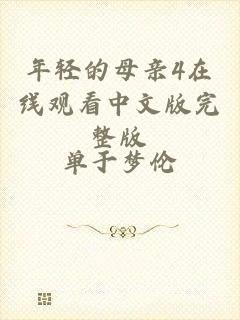 年轻的母亲4在
线观看中文版完
整版
单于梦伦